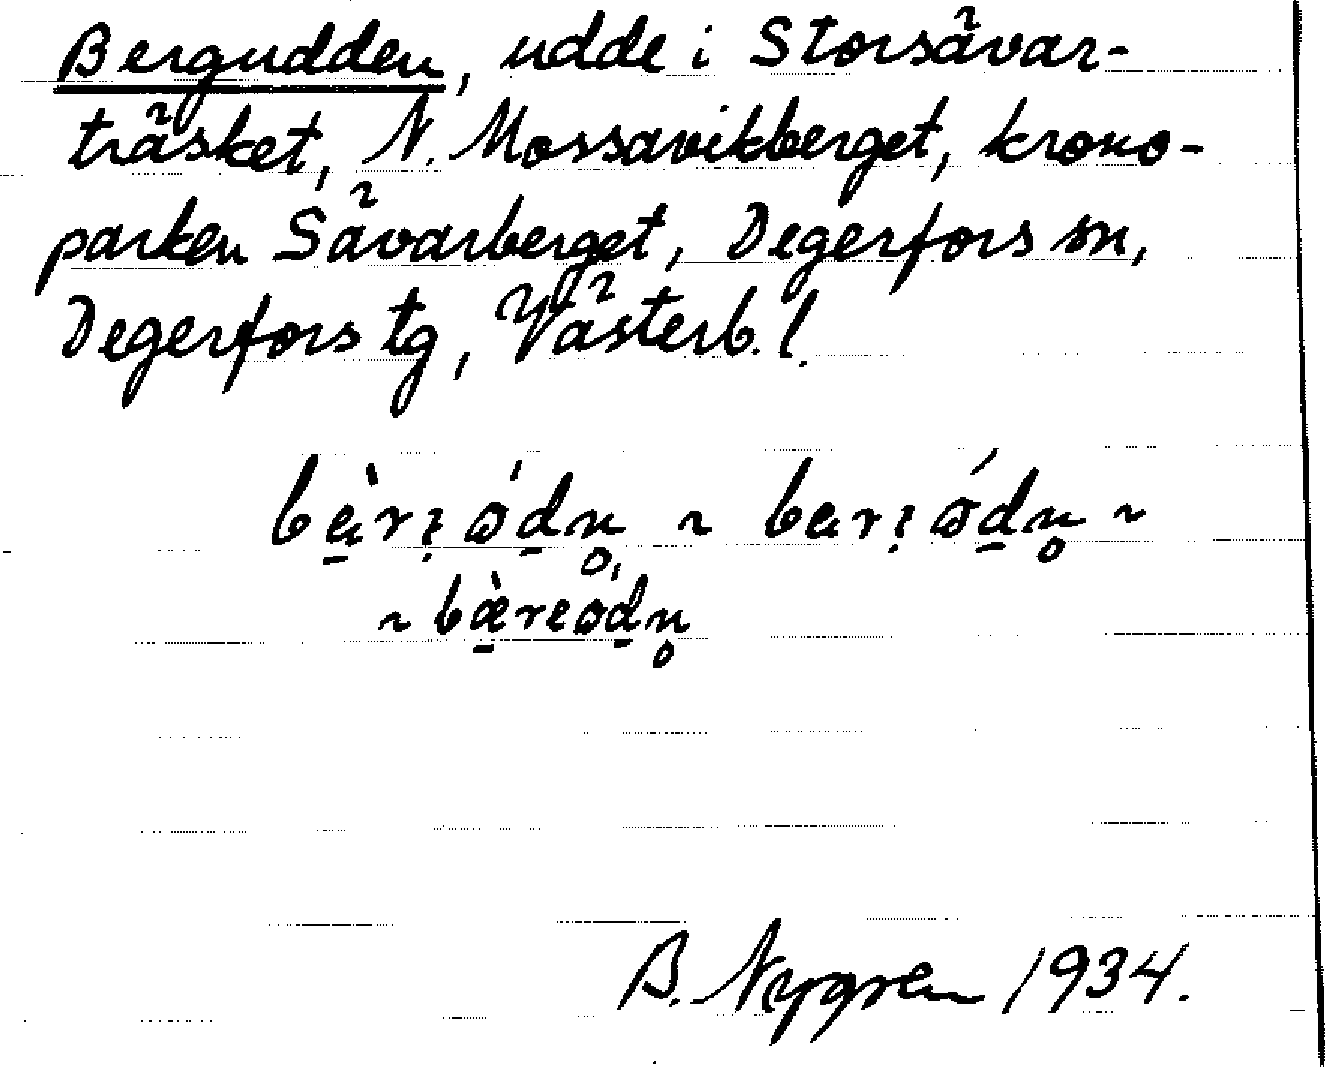 Bergudden, udde i Storsävar-
träsket, N. Mossavikberget, krono-
parken Sävarberget, Degerfors sn,
Degerfors tg, Västerb. l.
bа̱̀rı̣ǿḏn̥ ~ barı̣ǿḏn̥ ~
~ bæ̱̀reøḏn̥
B. Nygren 1934.